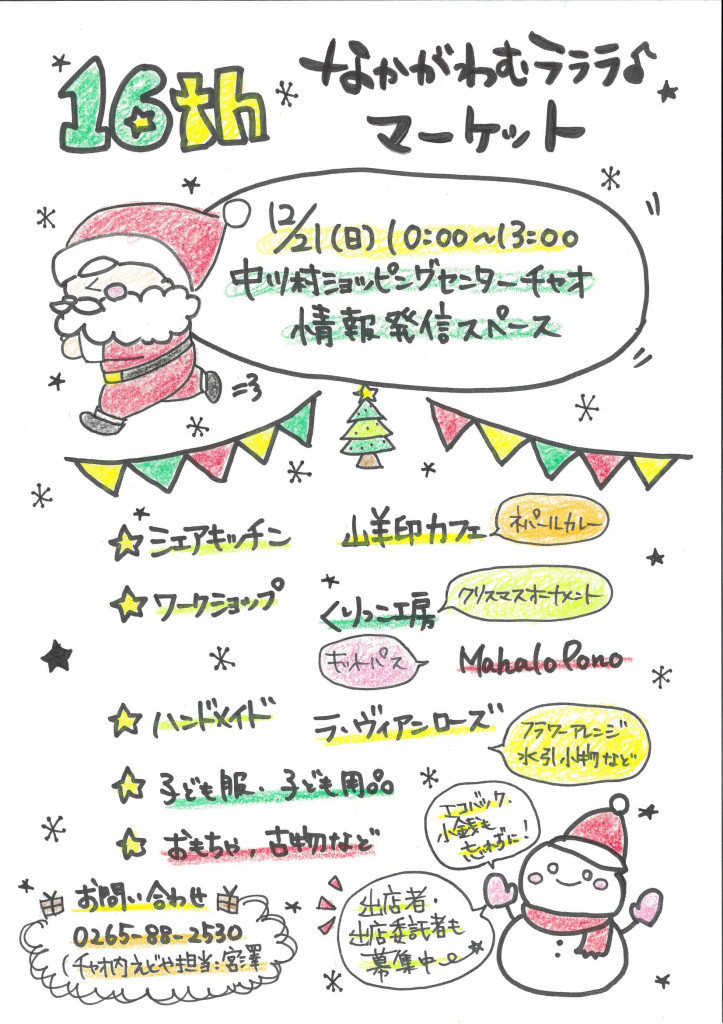 16th
なかがわむラララ♪
マーケット
12/21(日) 10:00〜13:00
中川村ショッピングセンターチャオ
情報発信スペース
シェアキッチン 山羊印カフェ ネパールカレー
ワークショップ くりっこ工房 クリスマスオーナメント
キットパス Mahalo Pono
ハンドメイド ラ・ヴィアンローズ
フラワーアレンジ
水引小物など
子ども服・子ども用品
おもちゃ、古物など
エコバック、
小銭も
忘れずに!
お問い合わせ
0265-88-2530
(チャオ内えどや担当:宮澤
出店者・
出店委託者も
募集中